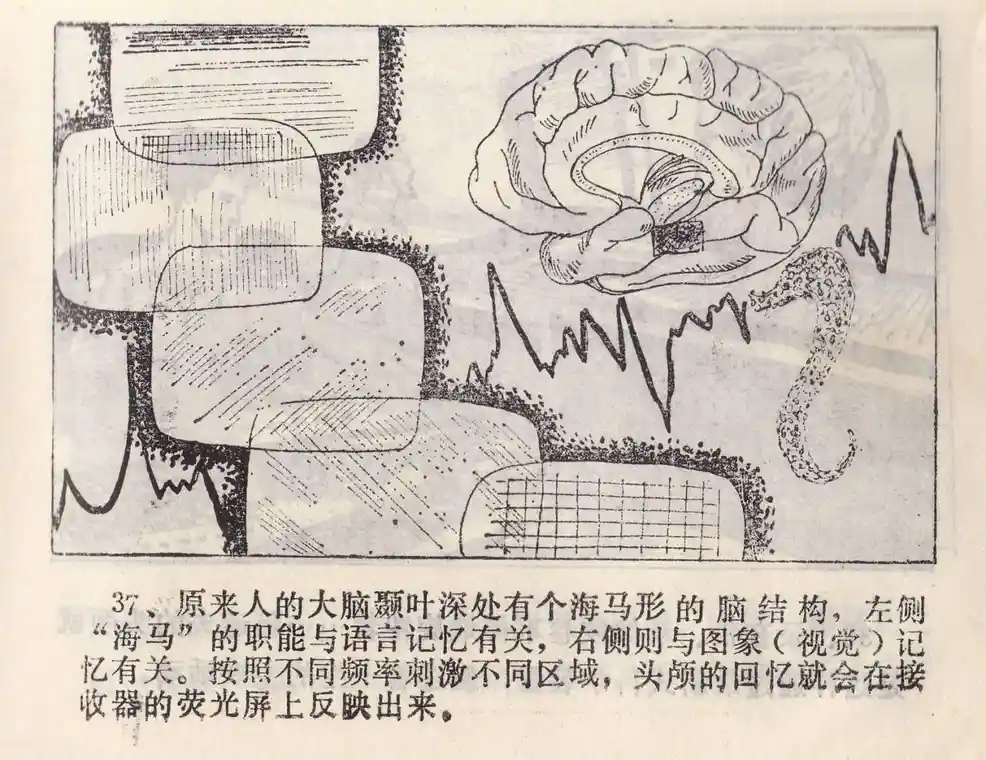 37、原来人的大脑颞叶深处有个海马形的脑结构，左侧
“海马”的职能与语言记忆有关，右侧则与图象（视觉）记
忆有关。按照不同频率刺激不同区域，头颅的回忆就会在接
收器的荧光屏上反映出来。